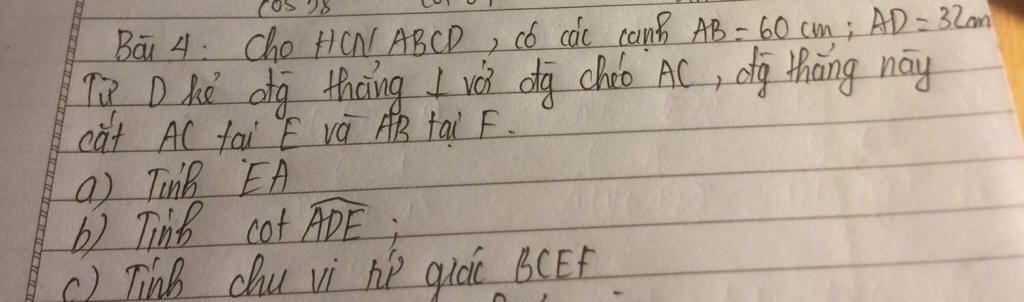 cos 28
Bài 4: Cho HCN ABCD, có các cạnh AB = 60 cm; AD = 32cm
Từ D kẻ đtg thẳng ⊥ với đtg chéo AC, đtg thẳng này
cắt AC tại E và AB tại F.
a) Tính EA
b) Tính cot ADE;
c) Tính chu vi tứ giác BCEF